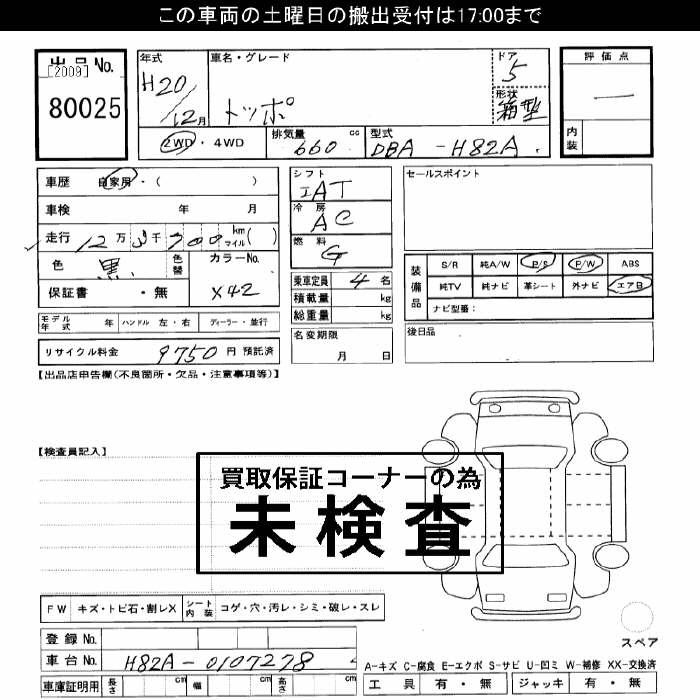 この車両の土曜日の搬出受付は17:00まで
出品 No.
[2009]
80025
年式
H20
/12月
車名・グレード
トッポ
ドア
5
形状
箱型
評価点
―
内装
2WD・4WD
排気量
660 cc
型式
DBA-H82A
車歴 自家用・( )
車検 年 月
走行 12万 3千 700 km マイル( )
色 黒
色替
カラーNo.
X42
保証書 ・無
シフト
IAT
冷房
AC
燃料
G
乗車定員 4名
積載量 kg
総重量 kg
セールスポイント
装備品
S/R 純A/W P/S P/W ABS
純TV 純ナビ 革シート 外ナビ エアB
ナビ型番:
モデル年式 年 ハンドル 左・右 ディーラー・並行
名変期限
月 日
後日品
リサイクル料金 9750 円 預託済
【出品店申告欄(不良箇所・欠品・注意事項等)】
【検査員記入】
買取保証コーナーの為
未検査
FW キズ・トビ石・割レX シート内装 コゲ・穴・汚レ・シミ・破レ・スレ
登録 No.
車台 No. H82A-0107278
スペア
A-キズ C-腐食 E-エクボ S-サビ U-凹ミ W-補修 XX-交換済
車庫証明用 長さ cm 幅 cm 高さ cm
工具 有・無 ジャッキ 有・無